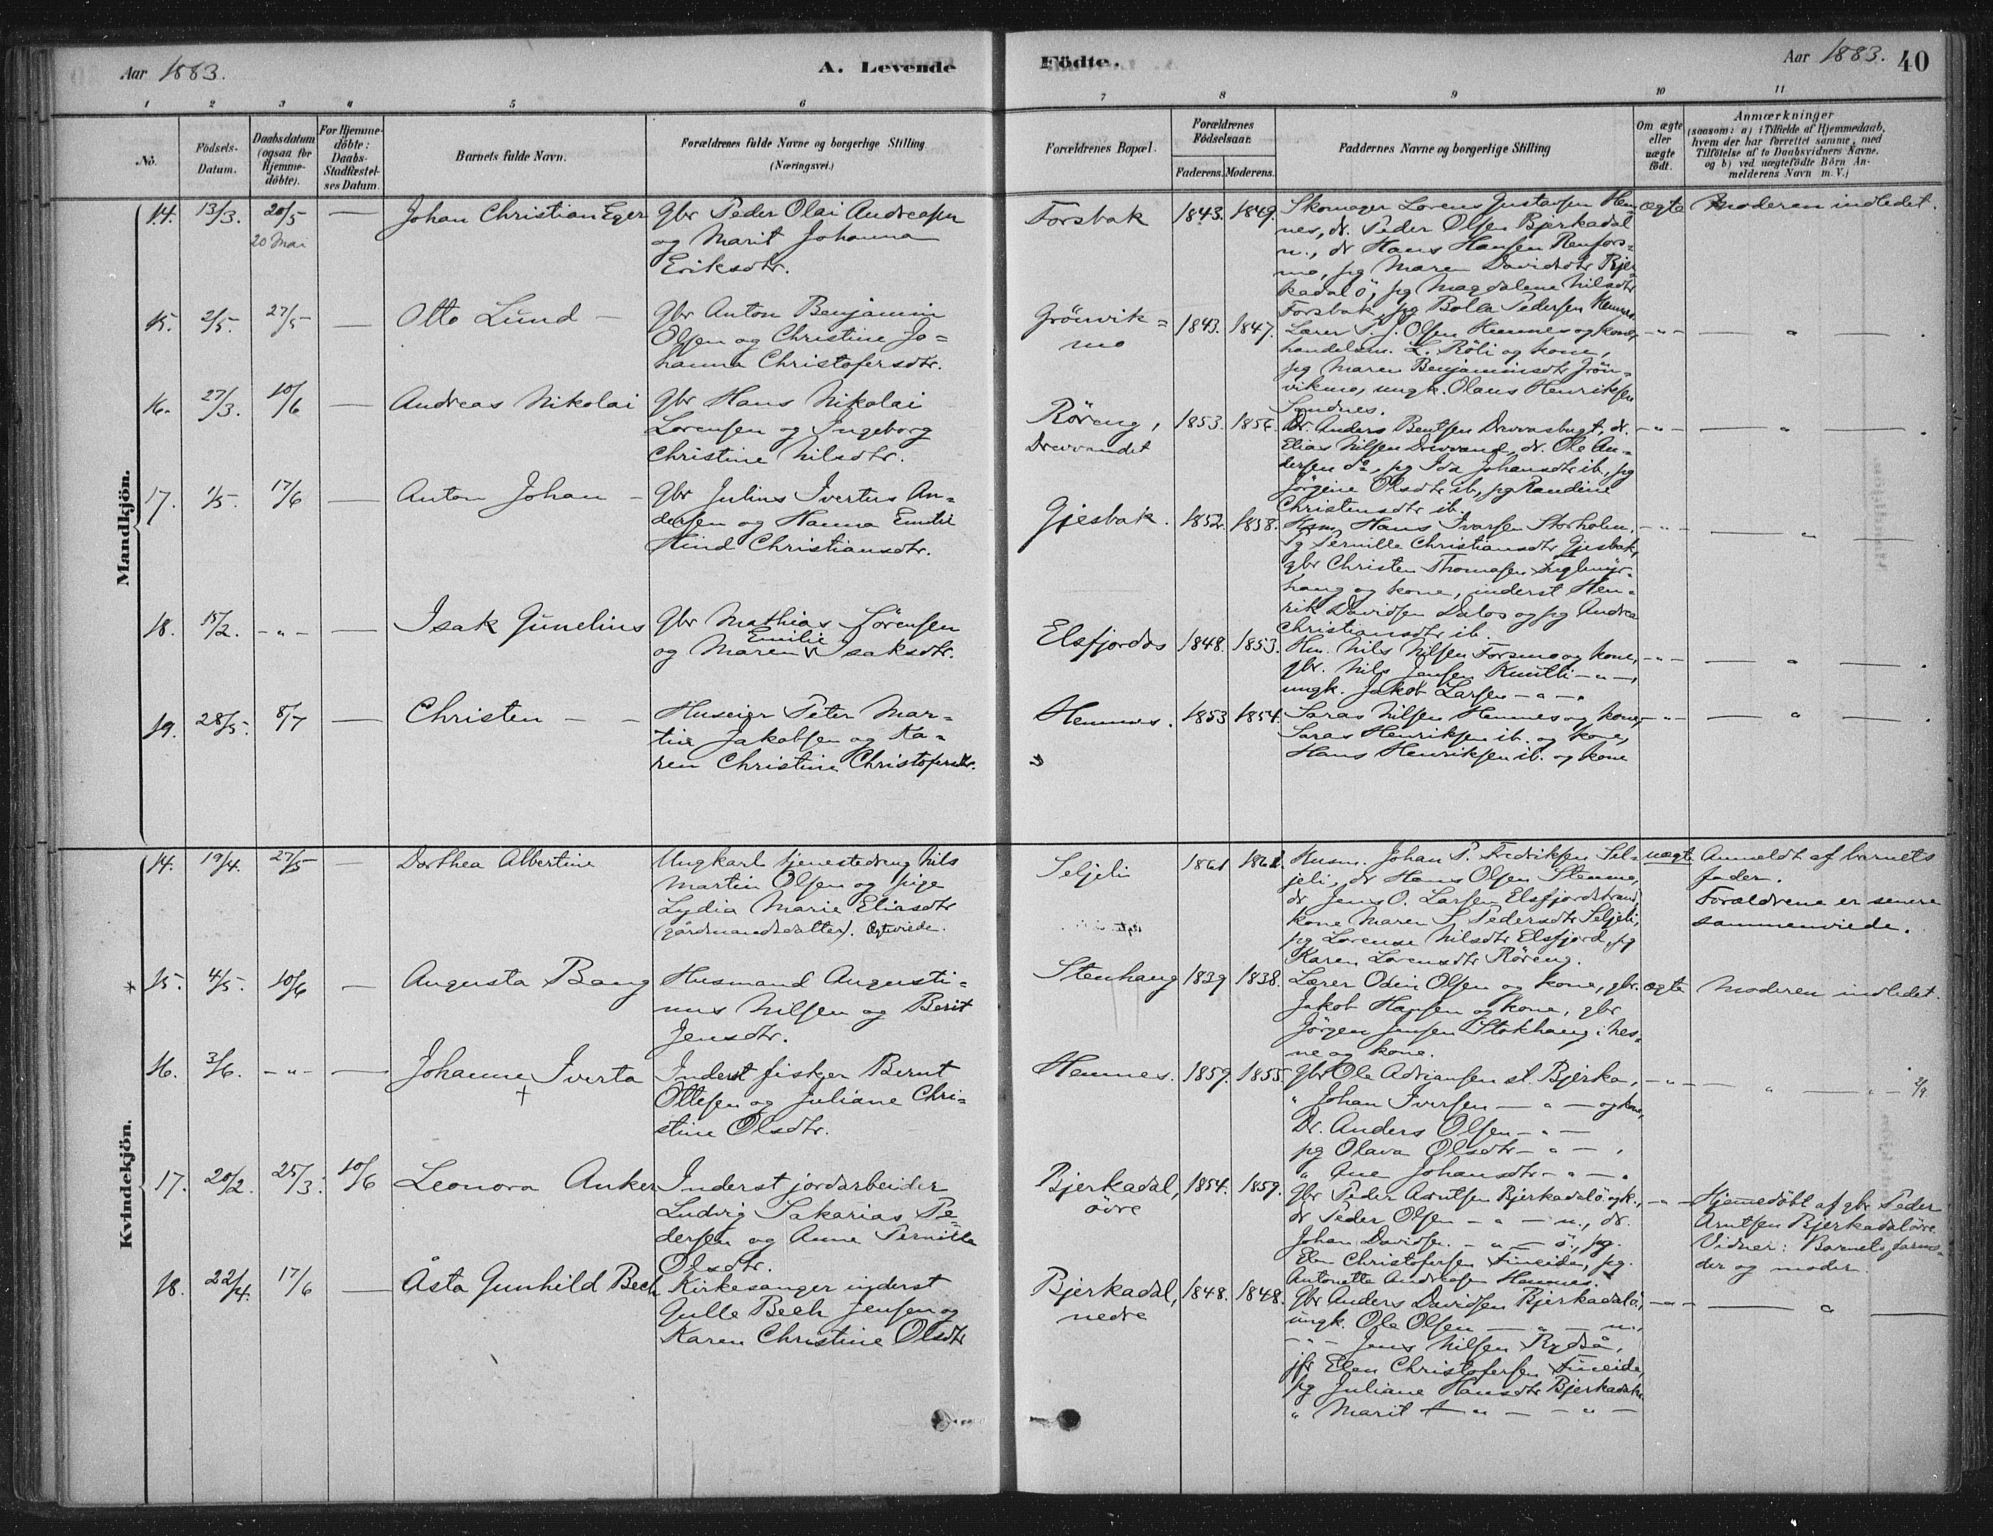 Aar 1883.
A. Levende
Födte.
Aar 1883. 40
1 2 3 4 5 6 7 8 9 10 11
No.
Födsels-
Datum.
Daabsdatum
(ogsaa for
Hjemme-
döbte).
For Hjemme-
döbte:
Daabs-
Stadfæstel-
ses Datum.
Barnets fulde Navn.
Forældrenes fulde Navne og borgerlige Stilling
(Næringsvei.)
Forældrenes Bopæl.
Forældrenes
Födselsaar.
Faderens. Moderens.
Faddernes Navne og borgerlige Stilling
Om ægte
eller
uægte
födt.
Anmærkninger
(saasom: a) i Tilfælde af Hjemmedaab,
hvem der har forrettet samme, med
Tilföielse af to Daabsvidners Navne.
og b) ved uægtefödte Börn An-
melderens Navn m. V.)
Mandkjön.
14. 13/3. 20/5 — Johan Christian Eger
20 Mai
Gbr Peder Olai Andreasen
og Marit Johanna
Eriksdtr.
Forsbak 1843. 1849.
Skomager Lorens Gustavsen Hem-
nes, dr. Peder Olsen Bjerkadal
n., dr Hans Hansen Renfors-
mo, pg Maren Davidsdtr Bjer-
kadal ö, pg Magdalene Nilsdtr
Forsbak, pg Bolla Pedersen Hemnes
ægte Moderen indledet.
15. 2/5. 27/5 — Otto Lund —
Gbr Anton Benjamin
Olsen og Christine Jo-
hanna Christofersdtr.
Grönvik-
mo 1843. 1847.
Lærer P. J. Olsen Hemnes og kone,
handelsm. L. Röli og kone,
pg Maren Benjaminsdtr Grön-
vikmo, ungk. Olaus Henriksen
Sundnes.
-"- — " — .
16. 27/3. 10/6 — Andreas Nikolai
Gbr Hans Nikolai
Lorensen og Ingeborg
Christine Nilsdtr.
Röreng,
Drevvandet 1853. 1856.
Dr. Anders Bentsen Drevvasbugt, dr.
Elias Nilsen Drevvand, dr. Ole An-
dersen do, pg Ida Johansdtr ib., pg
Jörgine Olsdtr ib, pg Randine
Christensdtr ib.
-"- — " — .
17. 1/5. 17/6 — Anton Johan —
Gbr Julius Ivertus An-
dersen og Hanna Emilie
Hind Christiansdtr.
Gjesbak. 1852. 1858.
Hsm. Hans Ivarsen Storholm,
Pg Pernille Christiansdtr Gjesbak,
gbr Christen Thomasen
haug og kone, inderst Hen-
rik Davidsen Dalos og pg Andrea
Christiansdtr ib.
-"- — " —
18. 15/2. -"- — Isak Gunelius
Gbr Mathias Sörensen
og Maren Emilie Isaksdtr.
Elsfjordos 1848. 1853.
Hm. Nils Nilsen Forsmo og kone,
gbr. Nils Jensen Knutli -"-,
ungk. Jakob Larsen -"-.
-"- — " — .
19. 28/5. 8/7 — Christen — —
Huseier Peter Mar-
tin Jakobsen og Ka-
ren Christine Christofersdtr.
Hemnes. 1853 1854.
Saras Nilsen Hemnes og kone,
Saras Henriksen ib. og kone,
Hans Henriksen ib. og kone
-"- — " — .
Kvindekjön.
14. 19/4. 27/5 — Dorthea Albertine
Ungkarl tjenestedreng Nils
Martin Olsen og pige
Lydia Marie Eliasdtr
(gårdmandsdatter).
Seljeli 1861 1861.
Husm. Johan P. Fredriksen Sel-
jeli, dr Hans Olsen Stemme,
dr Jens O. Larsen Elsfjordstrand,
kone Maren S. Pedersdtr Seljeli,
pg Lorense Nilsdtr Elsfjord, pg
Karen Lorensdtr Röreng.
uægte Anmeldt af barnets
fader.
Forældrene er senere
sammenviede.
* 15. 4/5. 10/6 — Augusta Bang
Husmand Augusti-
nus Nilsen og Berit
Jensdtr.
Stenhaug 1839 1838.
Lærer Odin Olsen og kone, gbr.
Jakob Hansen og kone, gbr
Jörgen Jensen Stokhaug i hes-
ne og kone.
ægte Moderen indledet.
16. 3/6. -"- — Johanne Iverta
+
Inderst fisker Bernt
Ottesen og Juliane Chri-
stine Olsdtr.
Hemnes. 1859. 1855.
Gbr Ole Adriansen st. Bjerka,
" Johan Iversen -"- og kone,
Dr. Anders Olsen -"-
pg Olava Olsdtr -"-,
" Ane Johansdtr -"-.
-"- — " — 2/9.
17. 20/2. 25/3. 10/6 Leonora Anker
Inderst jordarbeider
Ludvig Sakarias Pe-
dersen og Anne Pernille
Olsdtr.
Bjerkadal,
övre 1854. 1859.
Gbr Peder Arntsen Bjerkadal ö og k.,
dr Peder Olsen -"- n., dr.
Johan Davidsen -"- ö., pg.
Elen Christofersen Fineide, pg.
Antonette Andreasen Hemnes.
-"- Hjemmedöbt af gbr Peder
Arntsen Bjerkadal övre.
Vidner: Barnets farmo-
der og moder.
18. 22/4. 17/6 — Åsta Gunhild Bech
Kirkesanger inderst
Gulle Bech Jensen og
Karen Christine Olsdtr
Bjerkadal,
nedre 1848. 1848.
Gbr Anders Davidsen Bjerkadal ö,
ungk. Ole Olsen -"- n.,
-"- Jens Nilsen Rydså,
jfr Elen Christofersen Fineide,
pg Juliane Hansdtr Bjerkadal n.
" Marit -"-
-"- — " —